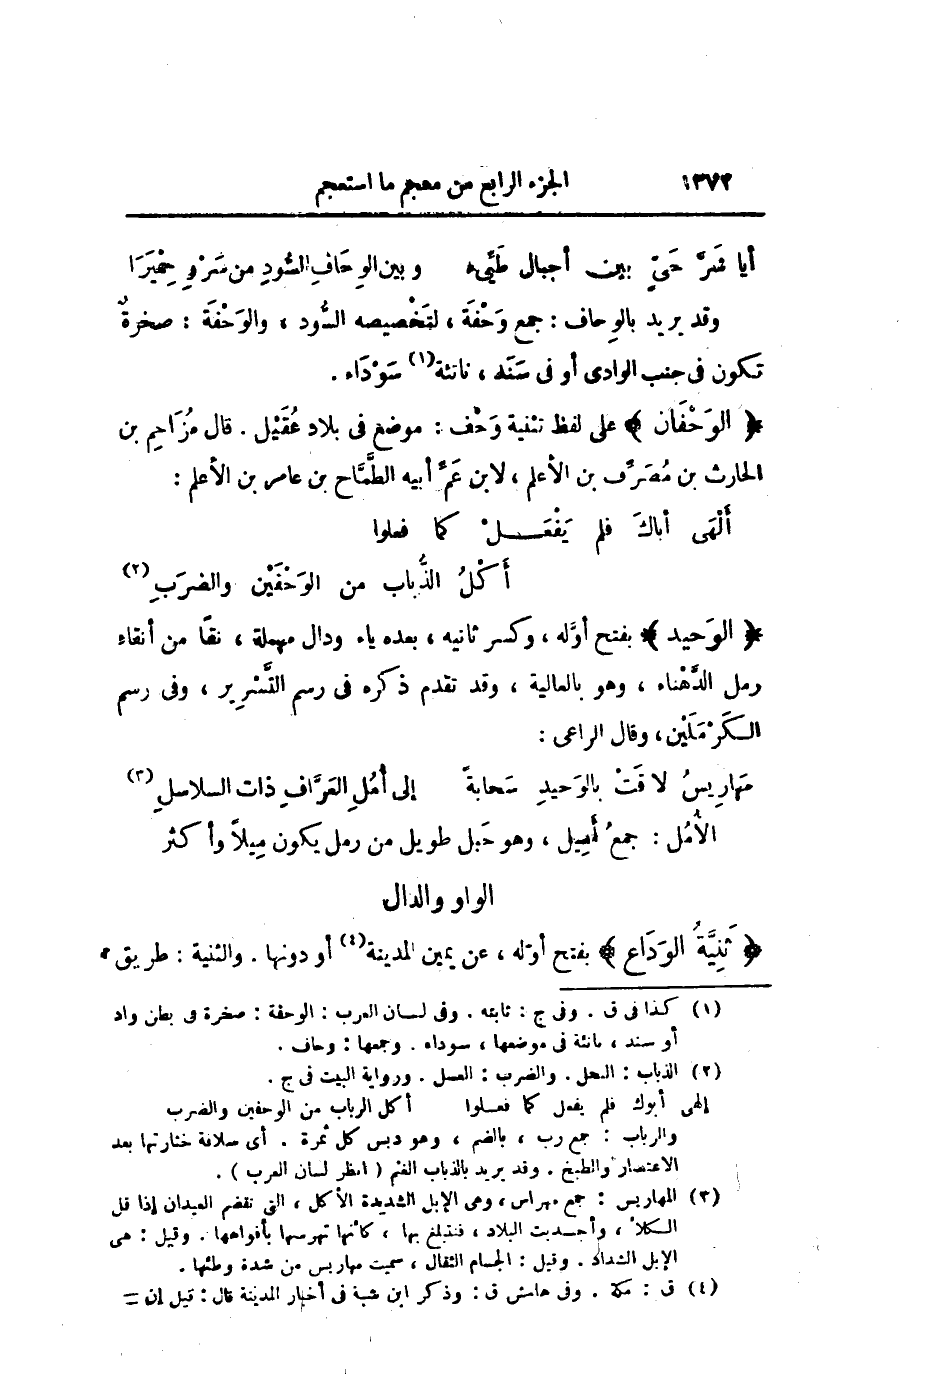 ١٣٧٢ الجزء الرابع من معجم ما استعجم
أيا شَرَّ حَىٍّ بين أجبال طَيِّىء وبين الوِحَافِ السُّودِ من سَرْوِ حِمْيَرَا
وقد يريد بالوِحاف : جمع وَحْفَة ، لتَخْصيصه السُّود ، والوَحْفَة : صخرةٌ
تكون فى جنب الوادى أو فى سَنَد ، ناتئة(١) سَوْدَاء .
﴿ الوَحْفَان ﴾ على لفظ تثنية وَحْف : موضع فى بلاد عُقَيْل . قال مُزَاحِم بن
الحارث بن مُصَرِّف بن الأعلم ، لابن عَمِّ أبيه الطَّمَّاح بن عامر بن الأعلم :
أَلْهَى أباكَ فلم يَفْعَـــلْ كما فعلوا
أَكْلُ الذُّباب من الوَحْفَيْن والضرَبِ(٢)
﴿ الوَحيد ﴾ بفتح أوّله ، وكسر ثانيه ، بعده ياء ودال مهملة ، نقًا من أنقاء
رمل الدَّهْناء ، وهو بالعالية ، وقد تقدم ذكره فى رسم التَّسْرِير ، وفى رسم
الكَرْمَلَيْن ، وقال الراعى :
مَهَارِيسُ لاقَتْ بالوَحيدِ سَحابةً إلى أُمُلِ العَزَّافِ ذات السلاسلِ(٣)
الأُمُل : جمعُ أَمِيل ، وهو حَبل طويل من رمل يكون مِيلاً وأكثر
الواو والدال
﴿ ثَنِيَّةُ الوَدَاع ﴾ بفتح أوّله ، عن يمين المدينة(٤) أو دونها . والثنية : طريق
(١) كذا فى ق . وفى ج : ثابته . وفى لسان العرب : الوحفة : صخرة فى بطن واد
أو سند ، ناتئة فى موضعها ، سوداء . وجمعها : وحاف .
(٢) الذباب : النحل . والضرب : العسل . ورواية البيت فى ج .
إلهى أبوك فلم يفعل كما فعــلوا أكل الرباب من الوحفين والضرب
والرباب : جمع رب ، بالضم ، وهو دبس كل ثمرة . أى سلافة خثارتها بعد
الاعتصار والطبخ . وقد يريد بالذباب الغنم ( انظر لسان العرب ) .
(٣) المهاريس : جمع مهراس ، وهى الإبل الشديدة الأكل ، التى تقضم العيدان إذا قل
الكلأ ، وأجدبت البلاد ، فتتبلغ بها ، كأنها تهرسها بأفواهها . وقيل : هى
الإبل الشداد . وقيل : الجسام الثقال ، سميت مهاريس من شدة وطئها .
(٤) ق : مكة . وفى هامش ق : وذكر ابن شبة فى أخبار المدينة قال : قيل إن =